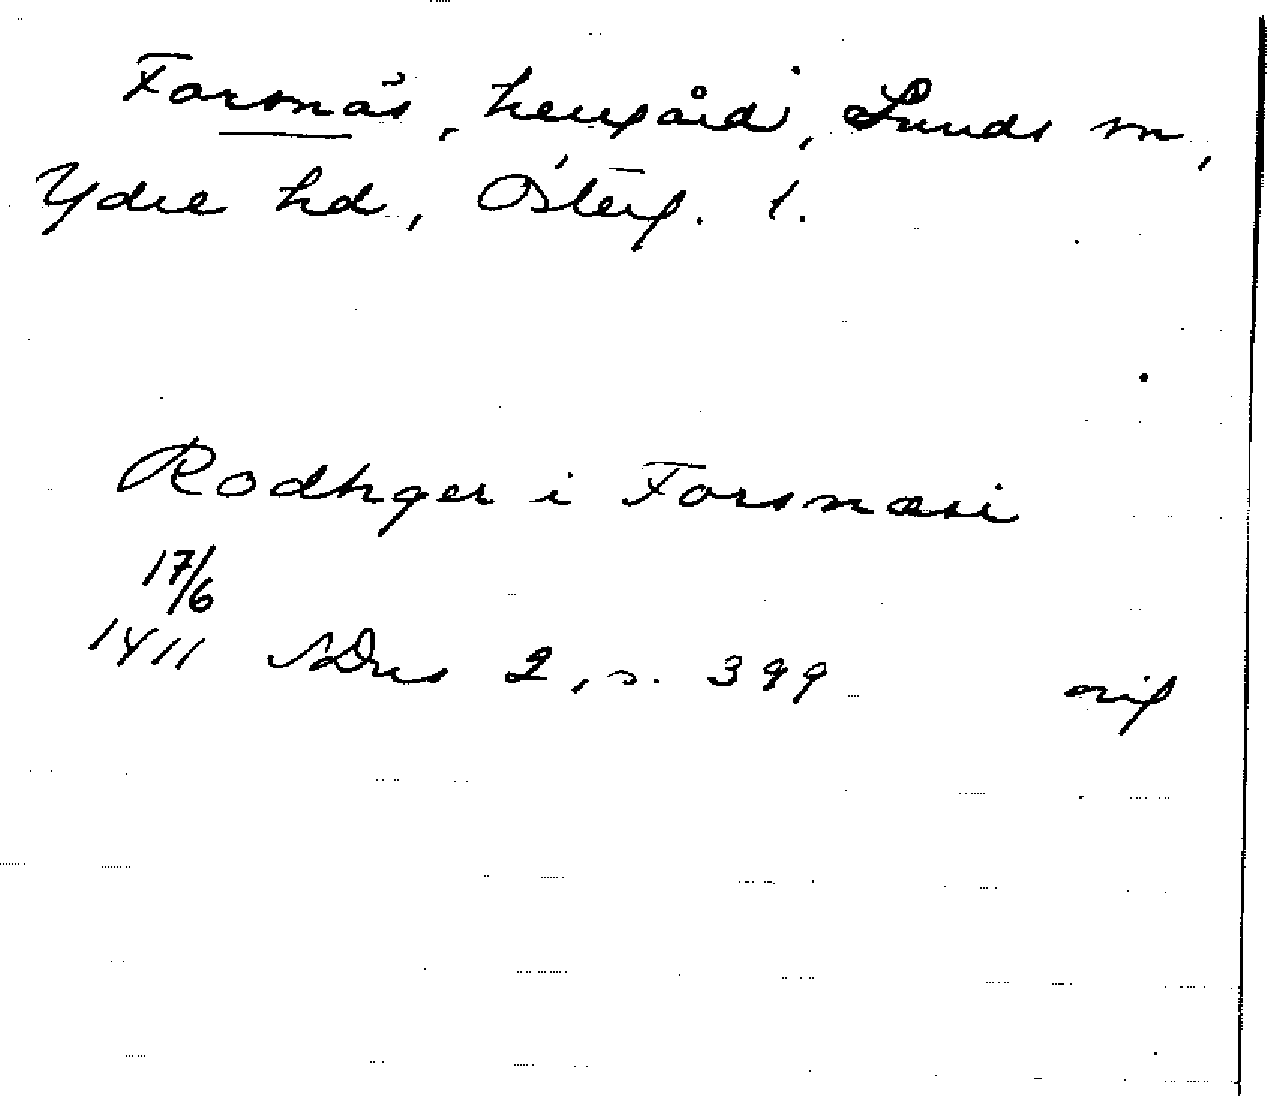 Forsnäs, herrgård, Sunds sn,
Ydre hd, Österg. l.
Rodhger i Forsnæsi
17/6
1411 SDns 2, s. 399 orig